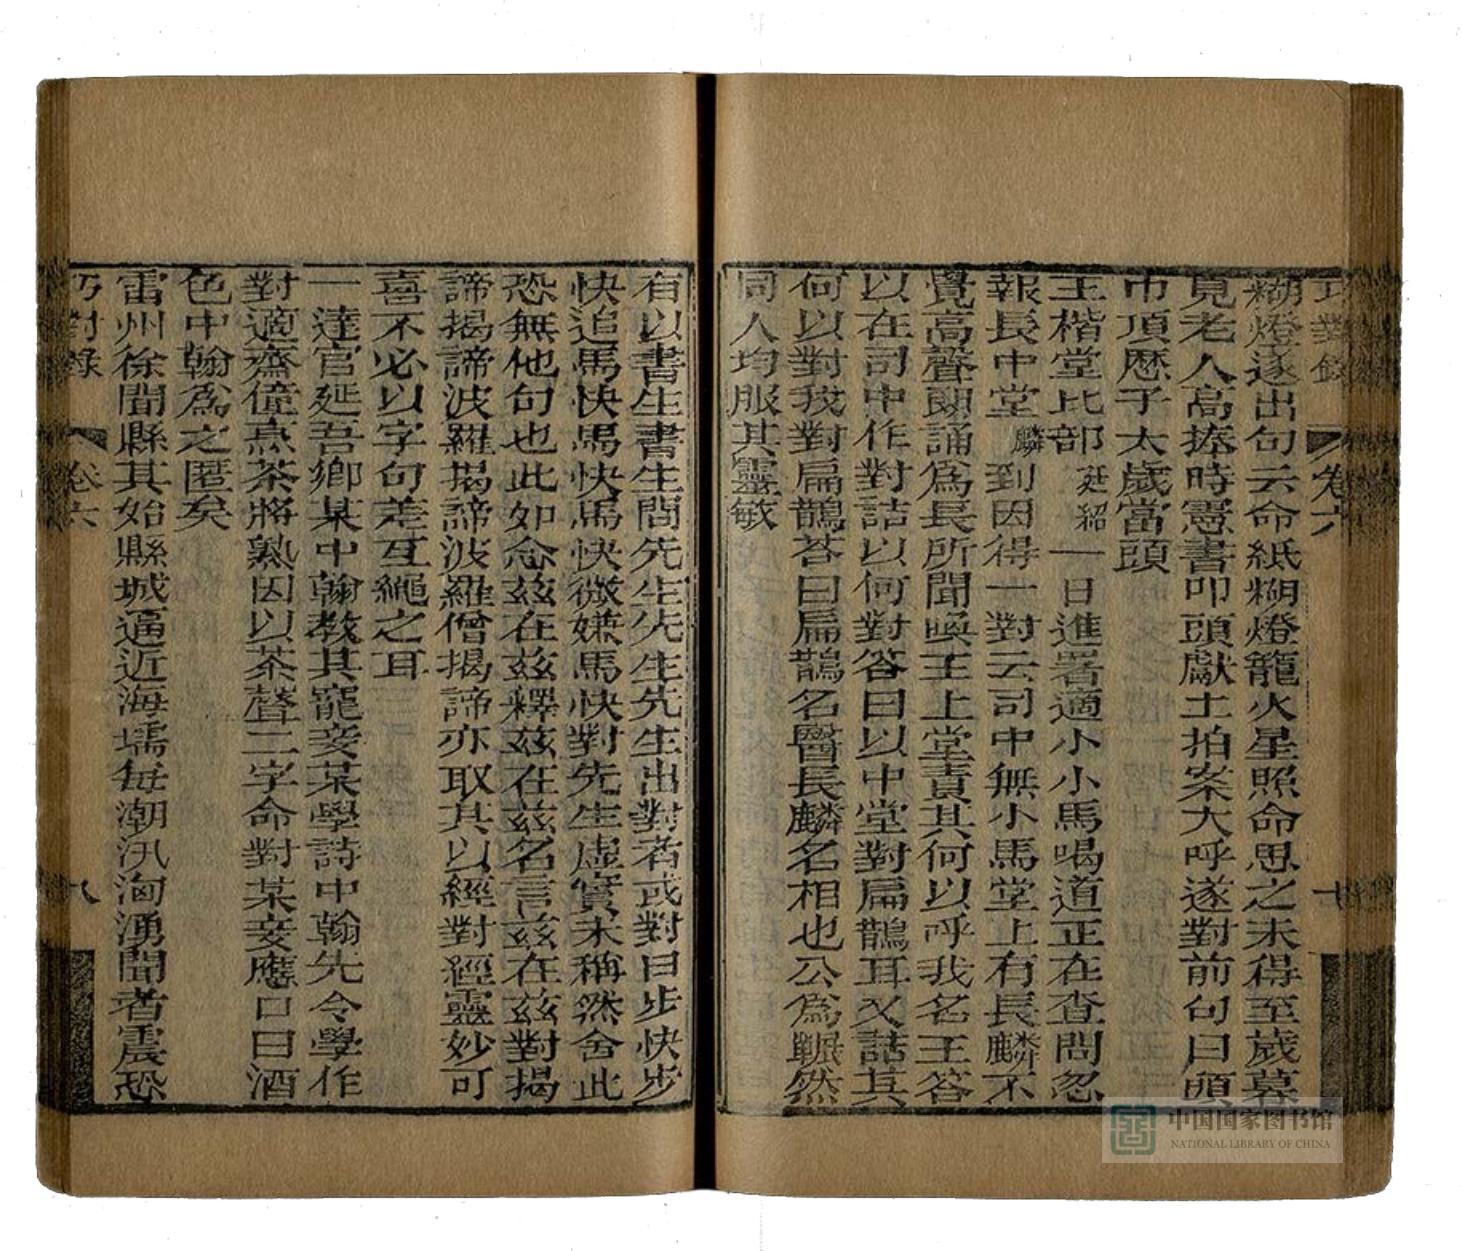 巧對錄 卷六 七
糊燈遂出句云命紙糊燈籠火星照命思之未得至歲暮
見老人高捧時憲書叩頭獻土拍案大呼遂對前句曰頭
巾頂歷子太歲當頭
王楷堂比部廷紹一日進署適小小馬喝道正在查問忽
報長中堂麟到因得一對云司中無小馬堂上有長麟不
覺高聲朗誦為長所聞喚王上堂責其何以呼我名王答
以在司中作對詰以何對答曰以中堂對扁鵲耳又詰其
何以對我對扁鵲荅曰扁鵲名醫長麟名相也公為囅然
同人均服其靈敏
有以書生書生問先生先生先生出對者或對曰步快步
快追馬快馬快馬快微嫌馬快對先生虛實未稱然舍此
恐無他句也此如念茲在茲釋茲在茲名言茲在茲對揭
諦揭諦波羅揭諦波羅僧揭諦亦取其以經對經靈妙可
喜不必以字句差互繩之耳
一達官延吾鄉某中翰教其寵妾某學詩中翰先令學作
對適齋僮烹茶將熟因以茶聲二字命對某妾應口曰酒
色中翰為之匿矣
雷州徐聞縣其始縣城逼近海壖每潮汛洶湧聞者震恐
巧對錄 卷六 八
中国国家图书馆
NATIONAL LIBRARY OF CHINA